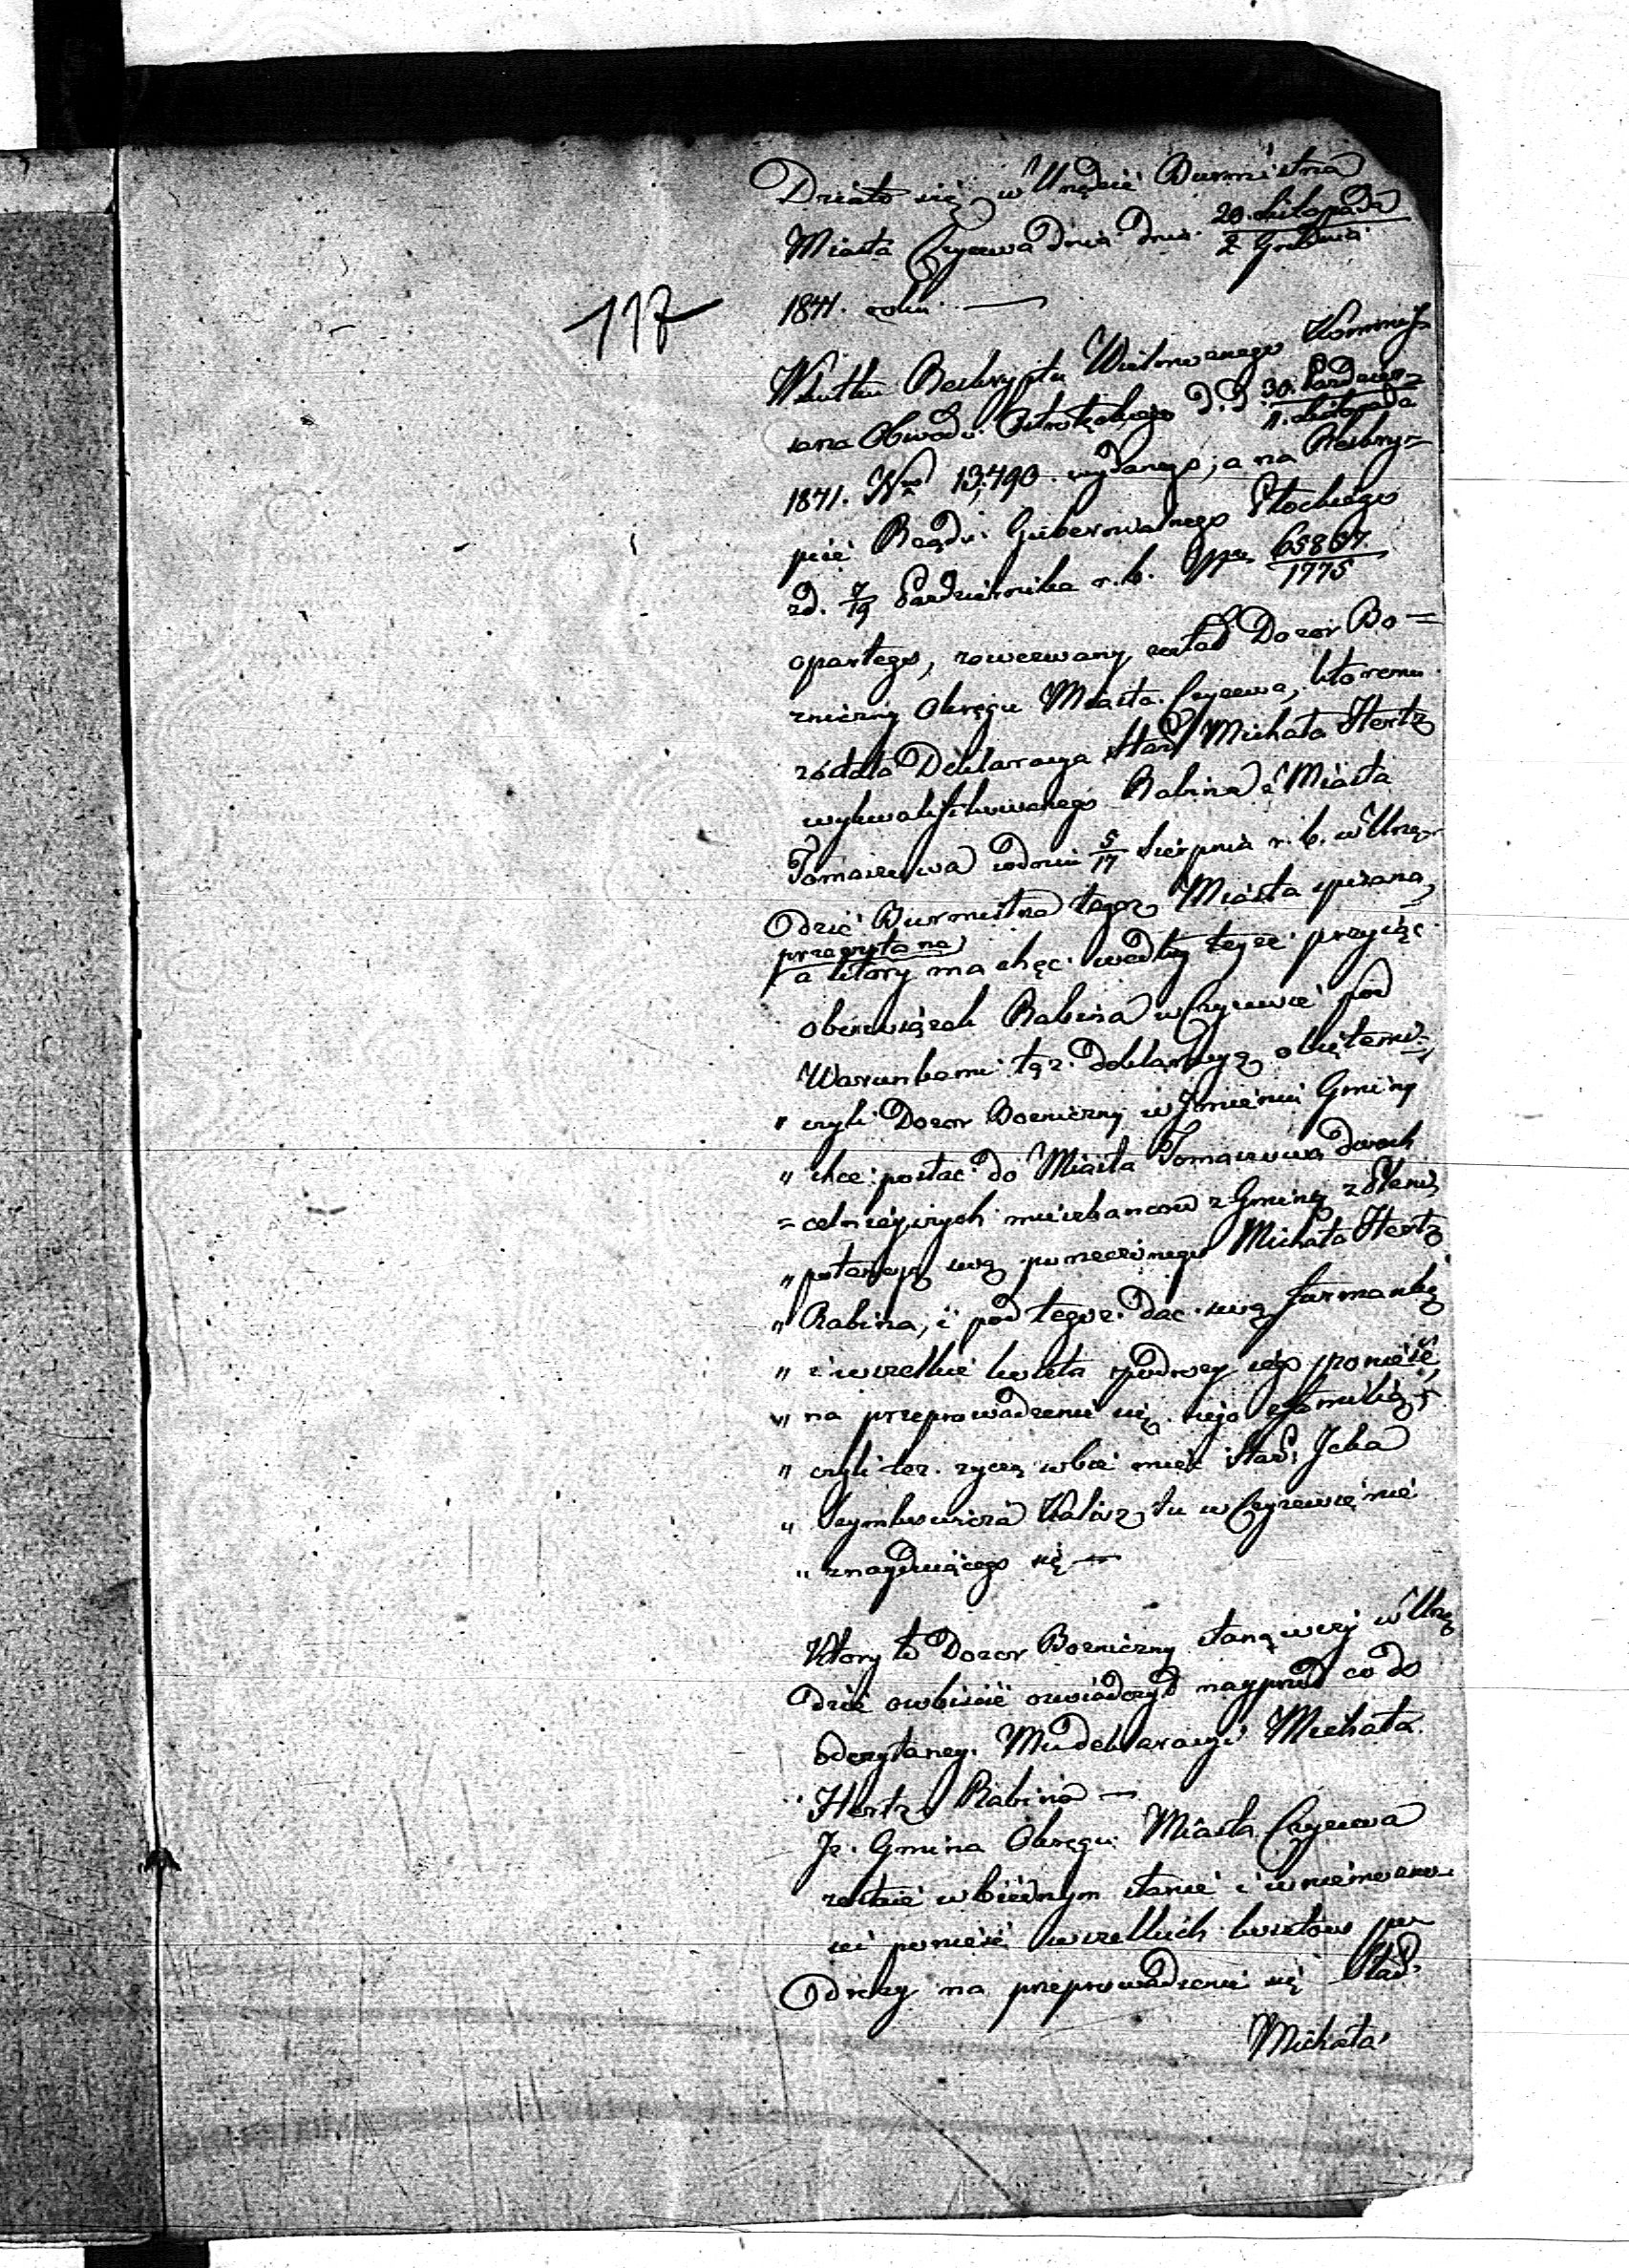 Działo się w Urzędzie Burmistrza
Miasta Czyżewa dnia dnia 20. Listopada / 2 Grudnia
117
1841. roku. —
Wskutku Reskryptu Wielmożnego Kommis
sarza Obwodu Ostrołęckiego d. d. 30. Paździer= / 11. Listopada
1841. Nro 13,490. wydanego, a na Reskryp=
pcie Rządu Gubernialnego Płockiego
zd. 7/19 Października r. b. 65867/1775
opartego, zawezwany został Dozor Bo=
zniczny Okręgu Miasta Czyżewa, ktoremu
została Deklaracya Star. Michała Hertz
wykwalifikowanego Rabina z Miasta
Tomaszewa wdniu 5/17 Sierpnia r. b. w Urzę=
dzie Burmistrza tegoż Miasta spisana,
przeczytana
a ktory ma chęć według teyże przyiąć
obowiązek Rabina w Czyżewie pod
Warunkami tąż deklaracyą obiętemi=,
" czyli Dozor Bozniczny w Jmieniu Gminy
" chce posłać do Miasta Tomaszewa dwoch
= celnieyszych mieszkancow z Gminy
" swą pomienionego Michała Hertz
" Rabina, i pod tegoż dać swą furmankę
" i wszelkie koszta podroży iego ponieść,
" na przeprowadzenie się iego z familią,
" czyli też życzą sobie mieć Star. Jcka
" Szymkowicza Kalisz, tu w Czyżewie nie
" znayduiącego się —
Ktory to Dozor Bozniczny stanąwszy w Urzę
dzie osobiscie oswiadczył nayprzod co do
odczytaney Mu deklaracyi Michała
Hertz Rabina —
Jż. Gmina Okręgu Miasta Czyżewa
zostaie w biednym stanie i w niemożno
sci ponieść wszelkich kosztow po
drozy na przeprowadzenie się Star.
Michała